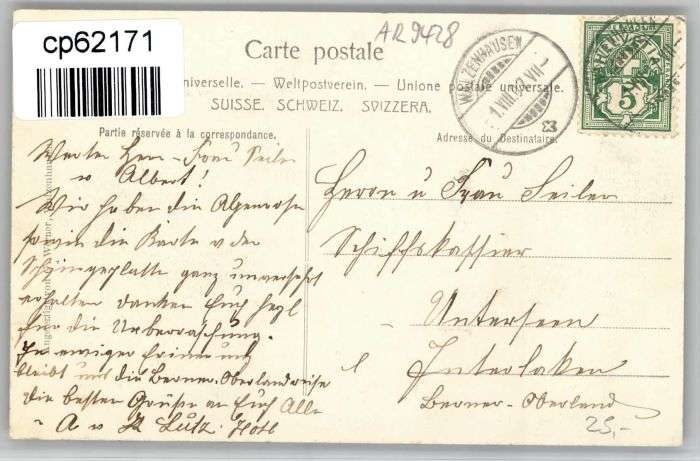 cp62171
AR9428
Carte postale
Universelle. — Weltpostverein. — Unione postale universale.
SUISSE. SCHWEIZ. SVIZZERA.
WALZENHAUSEN
HELVETIA
5
Partie réservée à la correspondance.
Adresse du Destinataire.
Werter Herr - Frau Seiler
u Albert!
Wir haben die Alpenrosen
sowie die Karte v der
Schÿnigeplatte ganz unversehrt
erhalten danken Euch herzl
für die Ueberraschung.
In ewiger Erinnerung
bleibt uns die Berner-Oberlandreise
die besten Grüsse an Euch Alle
A u Lutz
Herrn u Frau Seiler
Schiffskassier
Unterseen
Interlaken
Berner-Oberland
25,-